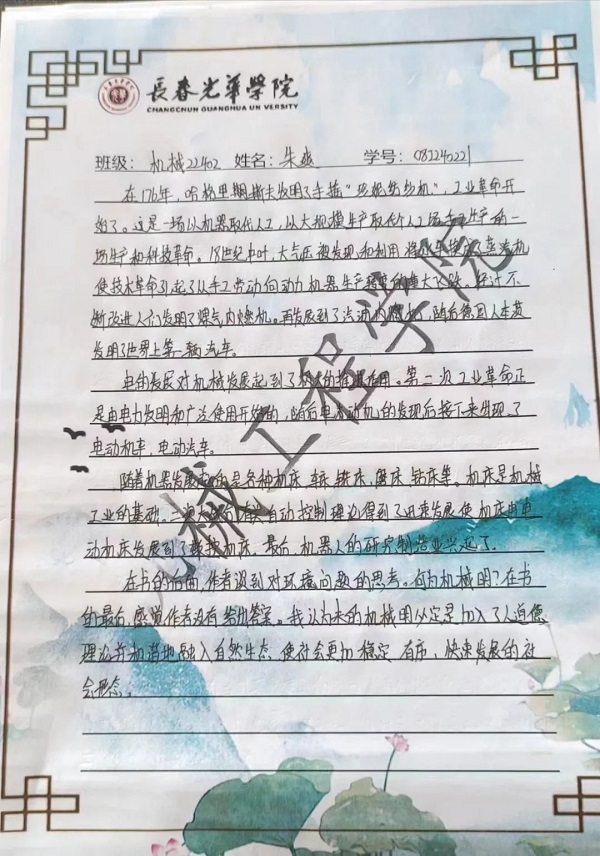 長春光華學院
CHANGCHUN GUANGHUA UNIVERSITY
班级: 机械22402 姓名: 朱爽 学号: 082240221
在176年,哈格里期撕夫发明了手摇"珍妮纺纱机",工业革命开
始了。这是一场以机器取代人工,以大规模生产取代个人工场手工生产的一
场生产和科技革命。18世纪中叶,大气压被发现和利用 蒸汽机
使技术革命引起了从手工劳动向动力机器生产转变的重大飞跃。经过不
断改进人们发明了煤气内燃机。再发展到了汽油内燃机,随后德国人本茨
发明了世界上第一辆汽车。
电的发展对机械发展起到了极大的推进作用。第二次工业革命正
是由电力发明和广泛使用开始的,随后电动机的发现后接下来出现了
电动机车,电动汽车。
随着机器发展起的是各种机床,车床,铣床,磨床,钻床等。机床是机械
工业的基础。二次大战后 自动控制理论得到了迅速发展,使机床由电
动机床发展到了数控机床。最后,机器人的研究制造业兴起了。
在书的后面,作者谈到对环境问题的思考。何为机械明?在书
的最后,感觉作者没有给出答案。我认为未来的机械明必定是加入了人道德
理论并和谐地融入自然生态,使社会更加稳定,有序,快速发展的社
会形态。
机械工程学院